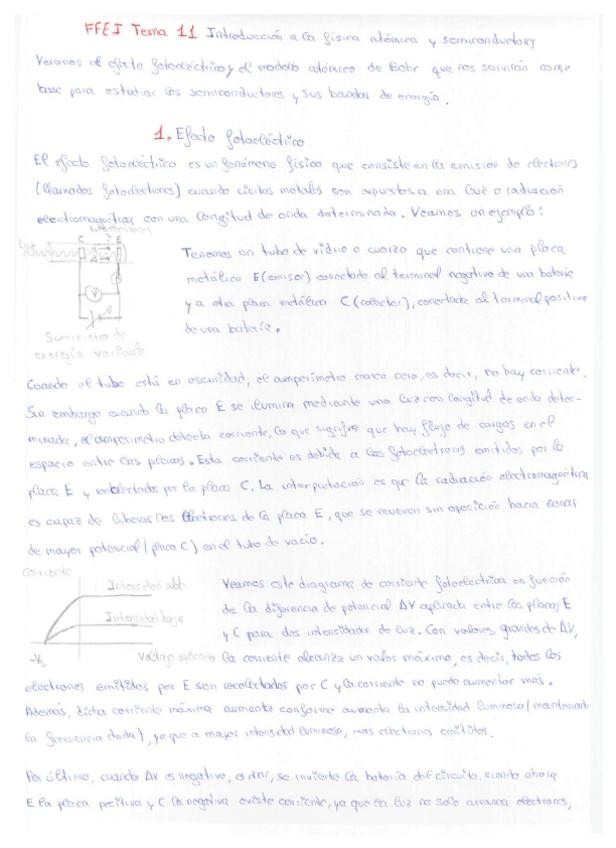 FFEI Tema 11 Introducción a la física atómica y semiconductores
Veremos el efecto fotoeléctrico y el modelo atómico de Bohr que nos servirán como
base para estudiar los semiconductores y sus bandas de energía.
1. Efecto fotoeléctrico
El efecto fotoeléctrico es un fenómeno físico que consiste en la emisión de electrones
(llamados fotoelectrones) cuando ciertos metales son expuestos a una luz o radiación
electromagnética con una longitud de onda determinada. Veamos un ejemplo:
Luz
C
E
V
Suministro de
energía variable
Tenemos un tubo de vidrio o cuarzo que contiene una placa
metálica E (emisor) conectado al terminal negativo de una batería
y a otra placa metálica C (colector), conectada al terminal positivo
de una batería.
Cuando el tubo está en oscuridad, el amperímetro marca cero, es decir, no hay corriente.
Sin embargo cuando la placa E se ilumina mediante una luz con longitud de onda deter-
minada, el amperímetro detecta corriente, lo que significa que hay flujo de cargas en el
espacio entre las placas. Esta corriente es debida a los fotoelectrones emitidos por la
placa E y por la placa C. La interpretación es que la radiación electromagnética
es capaz de liberar los electrones de la placa E, que se mueven sin oposición hacia zonas
de mayor potencial (placa C) en el tubo de vacío.
Corriente
Intensidad alta
Intensidad baja
-Vs
Voltaje aplicado
Veamos este diagrama de corriente fotoeléctrica en función
de la diferencia de potencial ΔV aplicada entre las placas E
y C para dos intensidades de luz. Con valores grandes de ΔV,
la corriente alcanza un valor máximo, es decir, todos los
electrones emitidos por E son recolectados por C y la corriente no puede aumentar más.
Además, dicha corriente máxima aumenta conforme aumenta la intensidad luminosa (manteniendo
la frecuencia dada), ya que a mayor intensidad luminosa, mas electrones emitidos.
Por último, cuando ΔV es negativo, es decir, se invierte la batería del circuito, siendo ahora
E la placa positiva y C la negativa existe corriente, ya que la luz no solo arranca electrones,